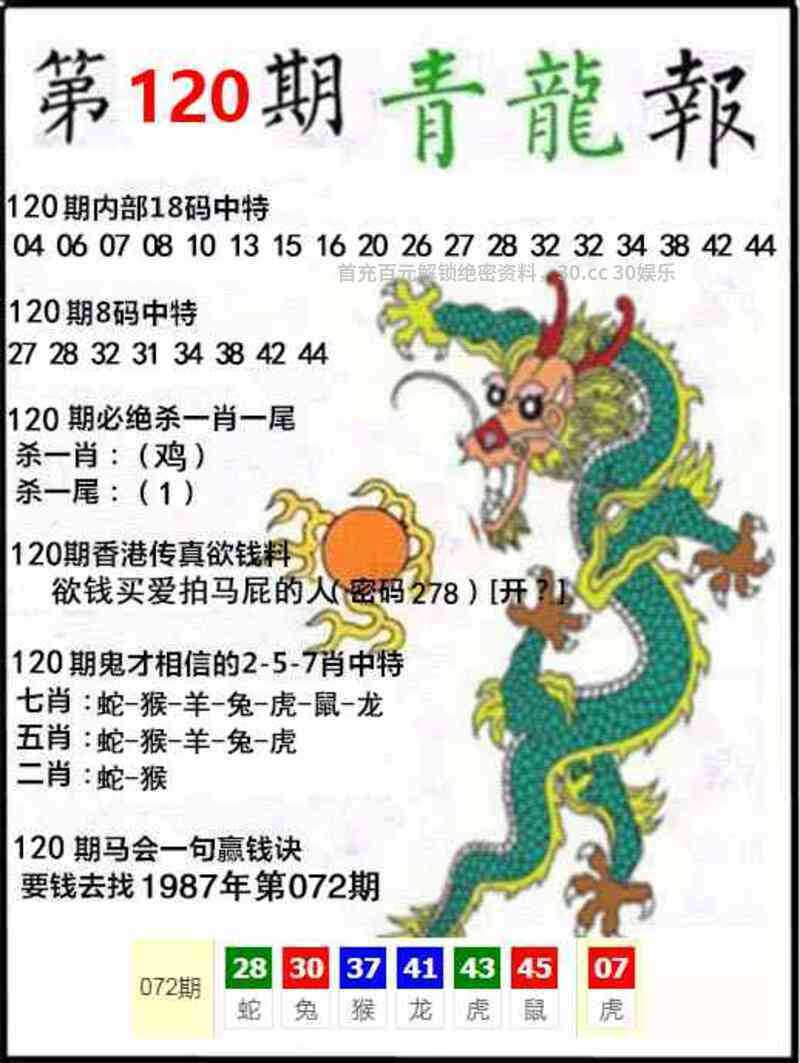 第120期青龍報
120期内部18码中特
04 06 07 08 10 13 15 16 20 26 27 28 32 32 34 38 42 44
首充百元解锁绝密资料，30.cc 30娱乐
120期8码中特
27 28 32 31 34 38 42 44
120期必绝杀一肖一尾
杀一肖：（鸡）
杀一尾：（1）
120期香港传真欲钱料
欲钱买爱拍马屁的人(密码278)[开？]
120期鬼才相信的2-5-7肖中特
七肖：蛇-猴-羊-兔-虎-鼠-龙
五肖：蛇-猴-羊-兔-虎
二肖：蛇-猴
120期马会一句赢钱诀
要钱去找1987年第072期
072期 28 30 37 41 43 45 07
蛇 兔 猴 龙 虎 鼠 虎